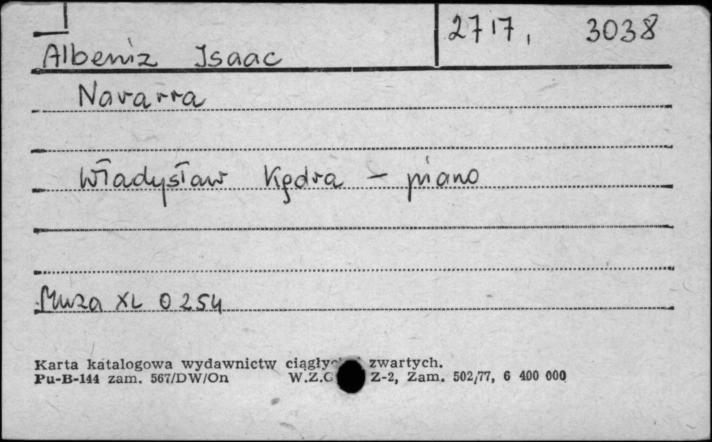 2717, 3038
Albeniz Isaac
Navarra
Władysław Kędra - piano
Muza XL 0254
Karta katalogowa wydawnictw zwartych.
Pu-B-144 zam. 567/DW/On W.Z.G Z-2, Zam. 502/77, 6 400 000